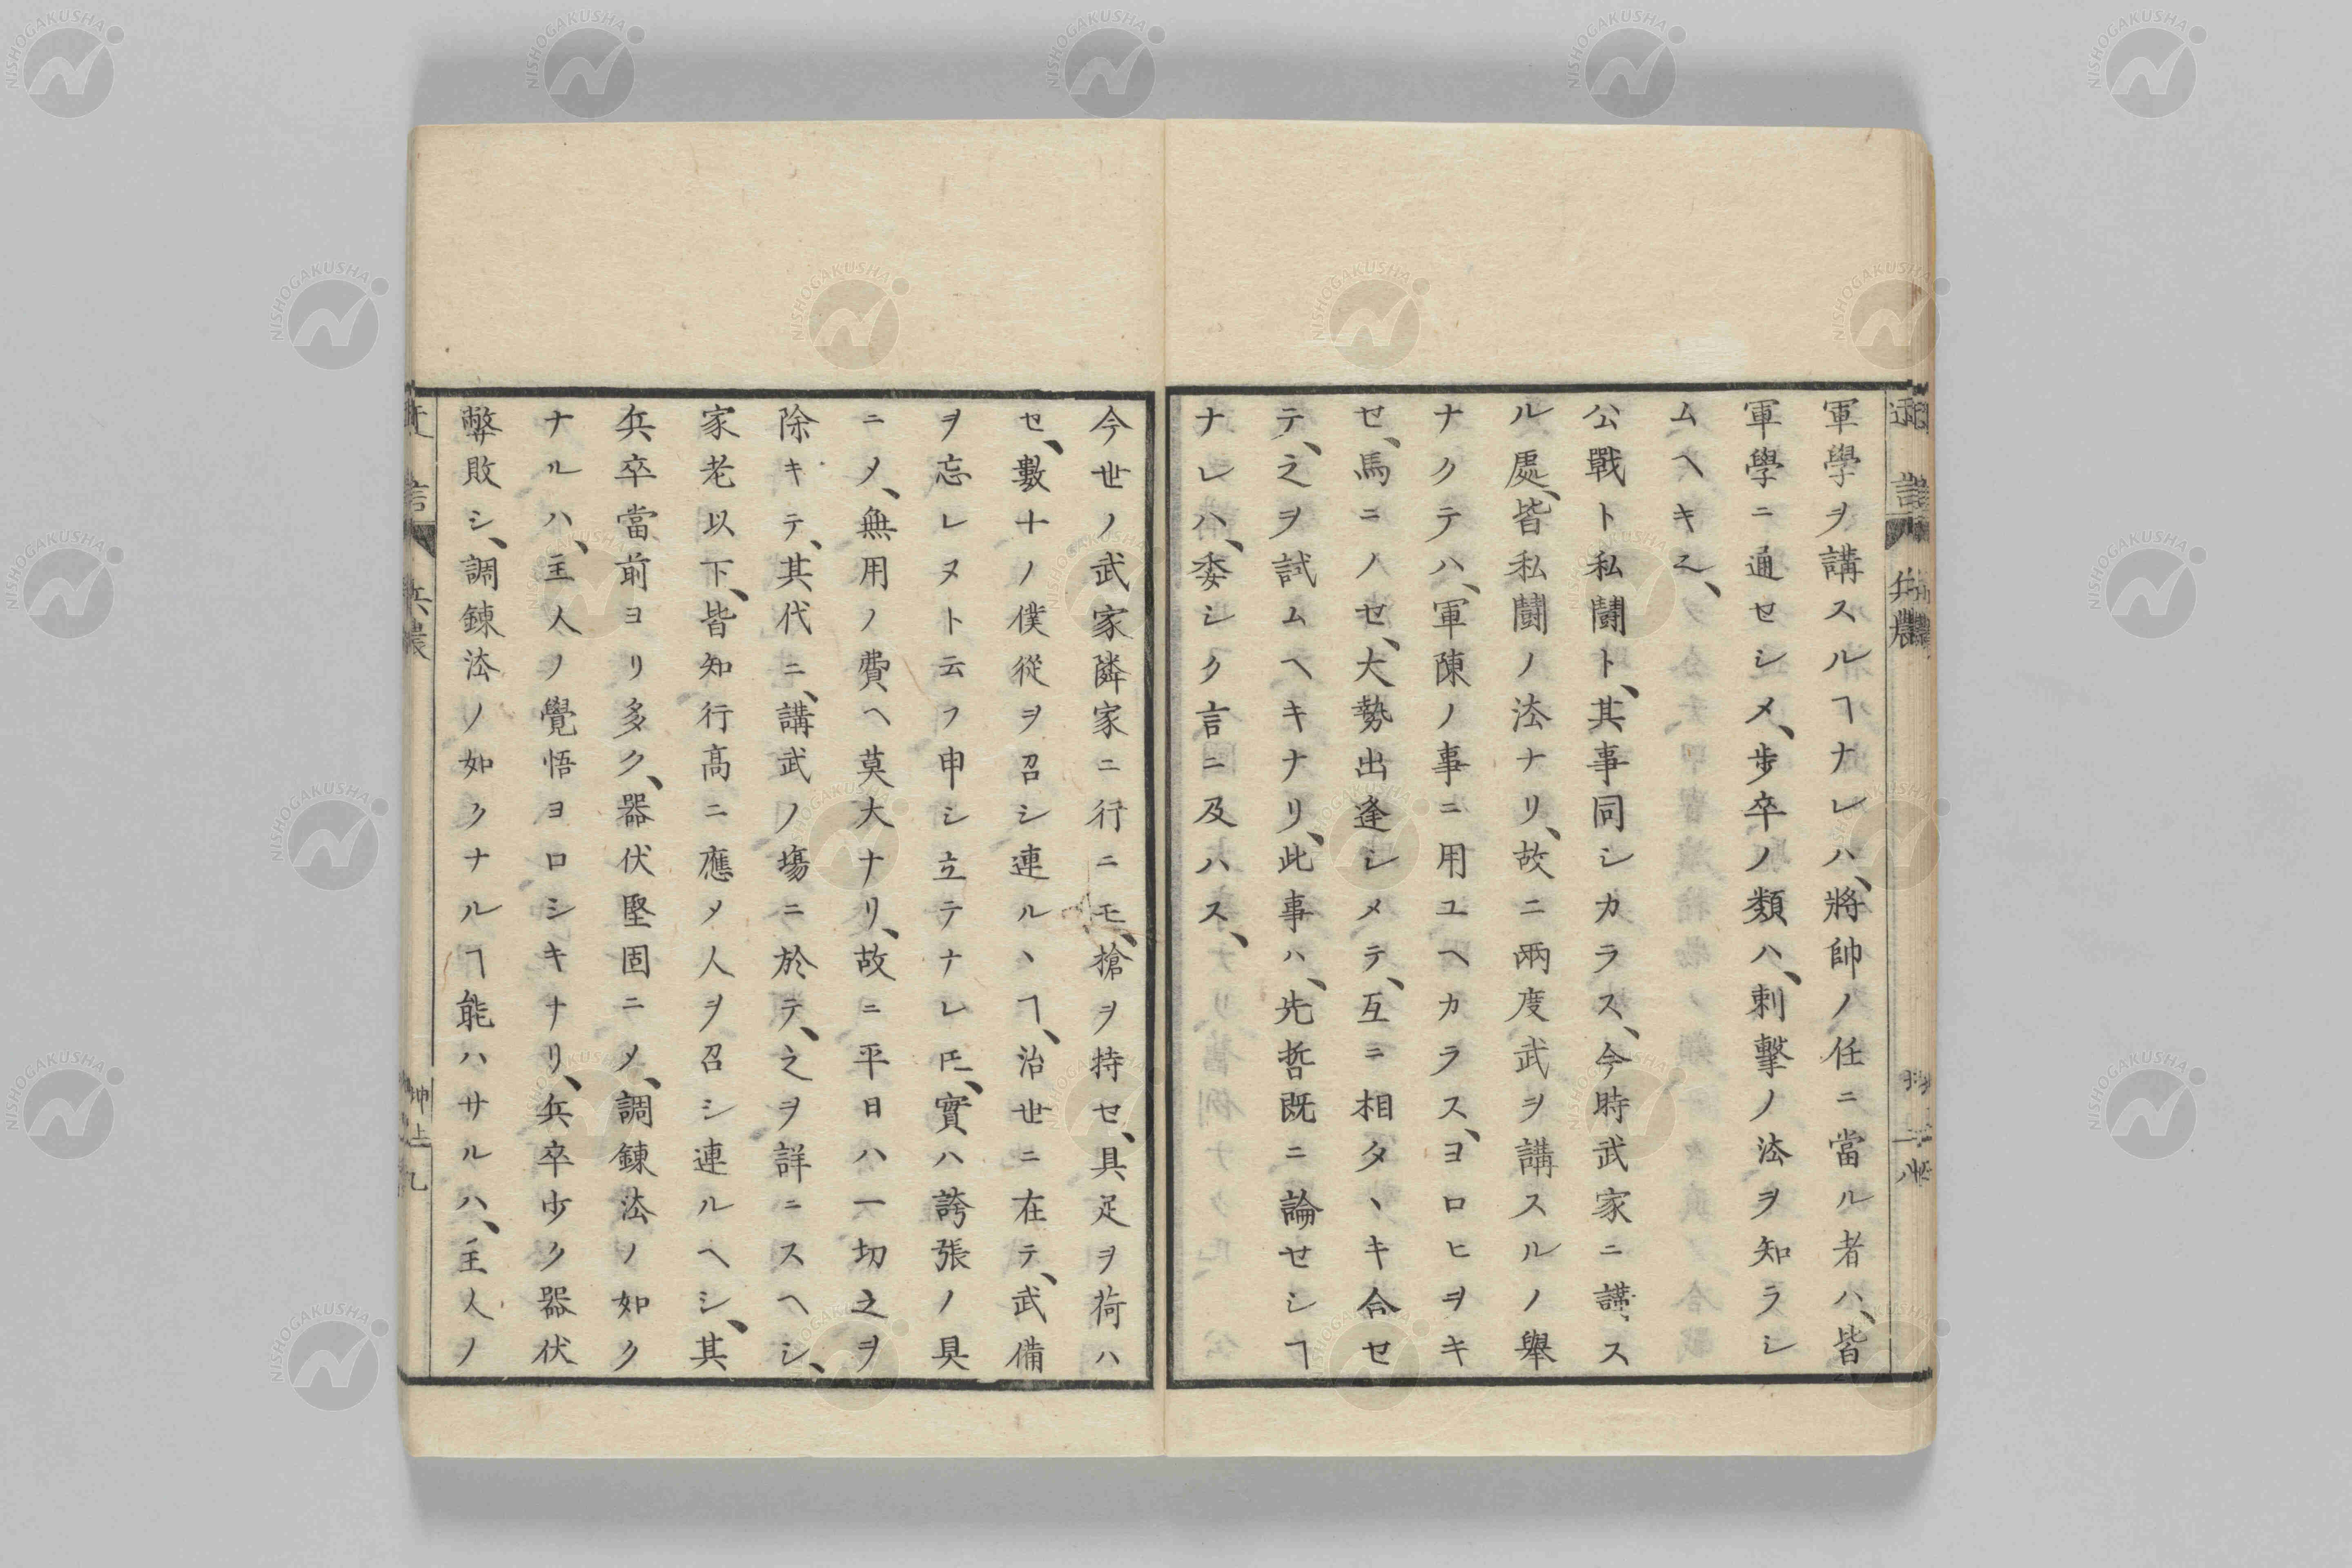 軍學ヲ講スルヿナレハ、將帥ノ任ニ當ル者ハ、皆
軍學ニ通セシメ、歩卒ノ類ハ、刺擊ノ法ヲ知ラシ
ムヘキヿ、
公戰ト私鬪ト、其事同シカラス、今時武家ニ講ス
ル處、皆私鬪ノ法ナリ、故ニ兩度武ヲ講スルノ擧
ナクテハ、軍陳ノ事ニ用ユヘカラス、ヨロヒヲキ
セ、馬ニノセ、大勢出逢シメテ、互ニ相タヽキ合セ
テ、之ヲ試ムヘキナリ、此事ハ、先哲既ニ論セシヿ
ナレハ、委シク言ニ及ハス、
今世ノ武家隣家ニ行ニモ、槍ヲ持セ、具足ヲ荷ハ
セ、數十ノ僕從ヲ召シ連ルヽヿ、治世ニ在テ、武備
ヲ忘レヌト云フ申シ立テナレ𪜈、實ハ誇張ノ具
ニメ、無用ノ費ヘ莫大ナリ、故ニ平日ハ一切之ヲ
除キテ、其代ニ、講武ノ塲ニ於テ、之ヲ詳ニスヘシ、
家老以下、皆知行高ニ應メ人ヲ召シ連ルヘシ、其
兵卒當前ヨリ多ク、器伏堅固ニメ、調錬法ノ如ク
ナルハ、主人ノ覺悟ヨロシキナリ、兵卒少ク器伏
弊敗シ、調錬法ノ如クナルヿ能ハサルハ、主人ノ